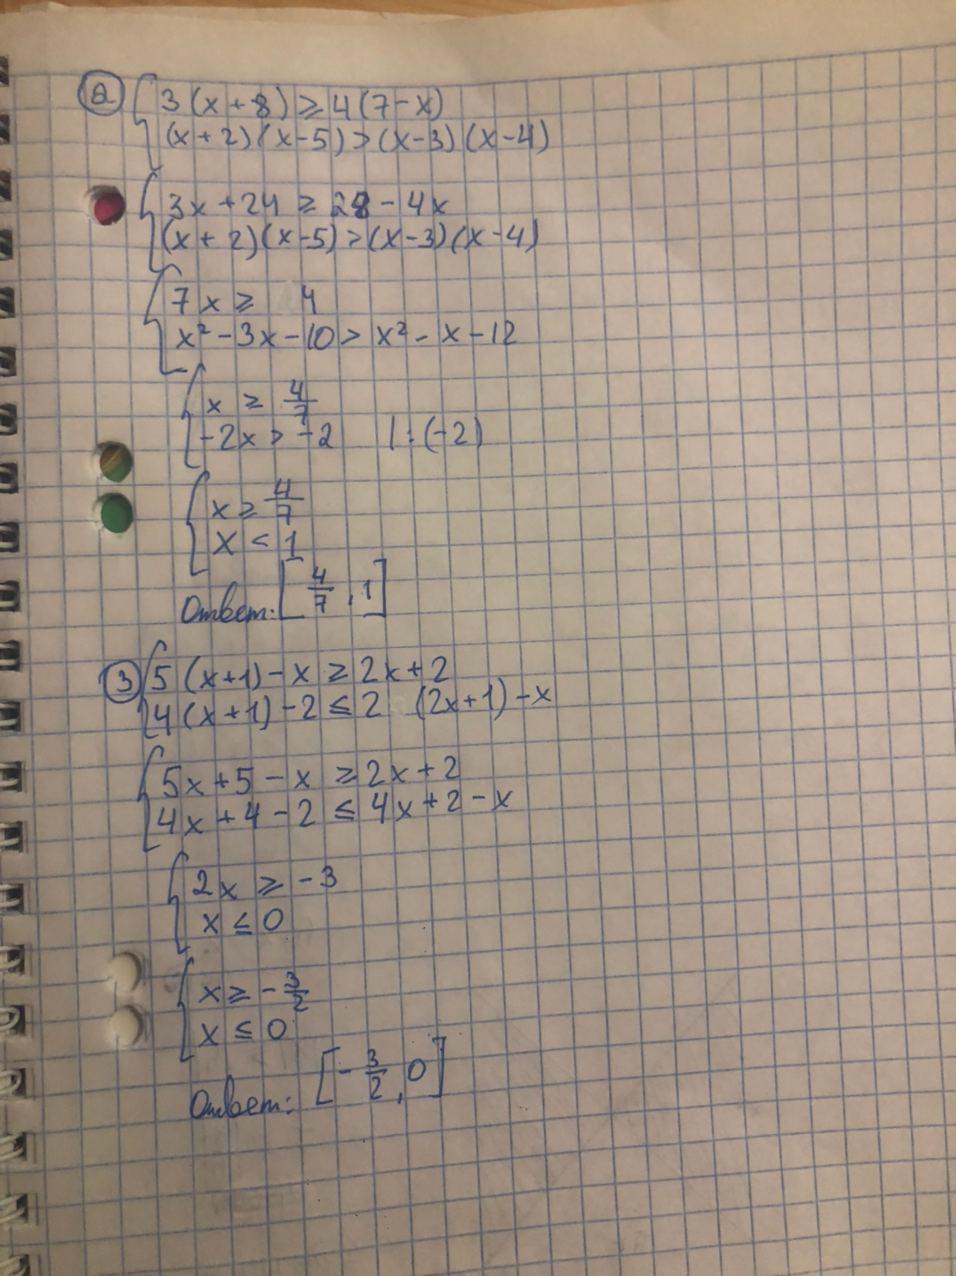 ② 3(x+8) ≥ 4(7-x)
(x+2)(x-5) > (x-3)(x-4)
3x+24 ≥ 28-4x
(x+2)(x-5) > (x-3)(x-4)
7x ≥ 4
x²-3x-10 > x²-x-12
x ≥ 4/7
-2x > -2 |:(-2)
x ≥ 4/7
x < 1
Ответ: [4/7, 1]
③ 5(x+1)-x ≥ 2x+2
4(x+1)-2 ≤ 2 (2x+1)-x
5x+5-x ≥ 2x+2
4x+4-2 ≤ 4x+2-x
2x ≥ -3
x ≤ 0
x ≥ -3/2
x ≤ 0
Ответ: [-3/2, 0]